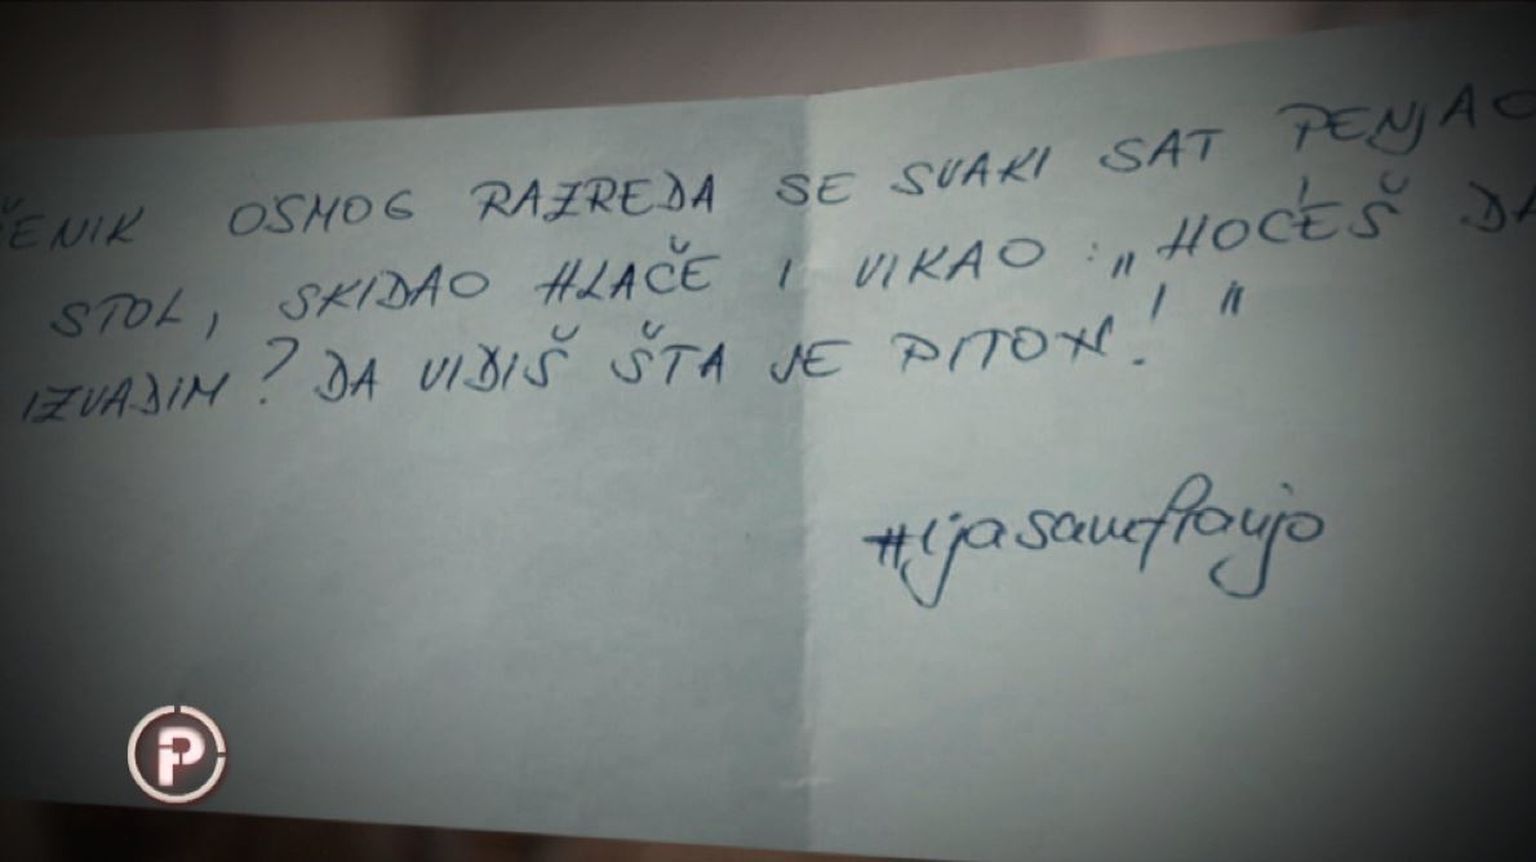 ČENIK OSMOG RAZREDA SE SVAKI SAT PENJAO
STOL, SKIDAO HLAČE I VIKAO: „HOĆEŠ DA
IZVADIM? DA VIDIŠ ŠTA JE PITON!"
#ijasamfranjo
P